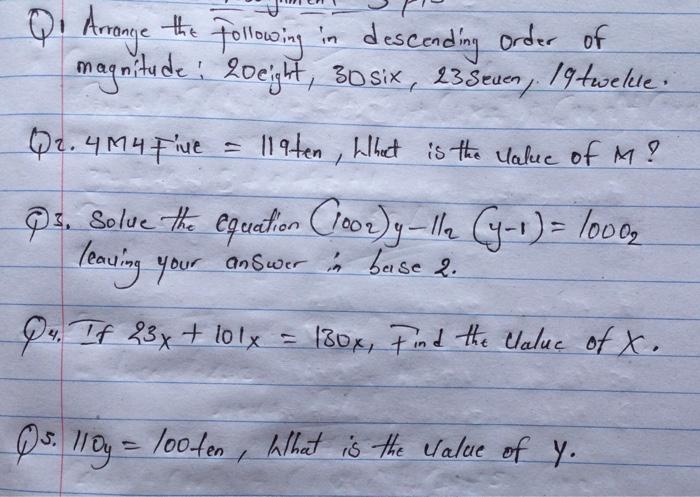 Q1 Arrange the following in descending order of
magnitude: 20eight, 30six, 23seven, 19twelve.
Q2. 4M4Five = 119ten, What is the value of M?
Q3. Solve the equation (100₂)y-11₂ (y-1) = 1000₂
leaving your answer in base 2.
Q4. If 23x + 101x = 130x, Find the value of X.
Q5. 110y = 100ten, What is the value of y.